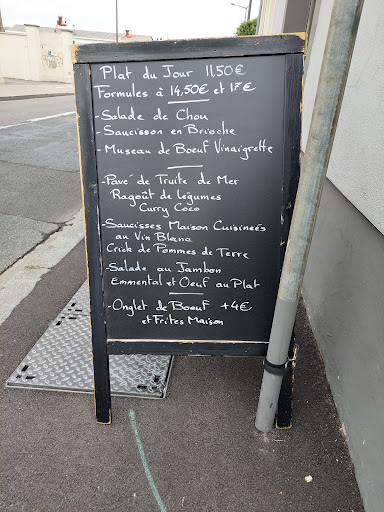 Plat du Jour 11,50€
Formules à 14,50€ et 17€
- Salade de Chou
- Saucisson en Brioche
- Museau de Boeuf Vinaigrette
- Pavé de Truite de Mer
Ragoût de légumes
Curry Coco
- Saucisses Maison Cuisineés
au Vin Blanc
Crick de Pommes de Terre
- Salade au Jambon
Emmental et Oeuf au Plat
- Onglet de Boeuf +4€
et Frites Maison